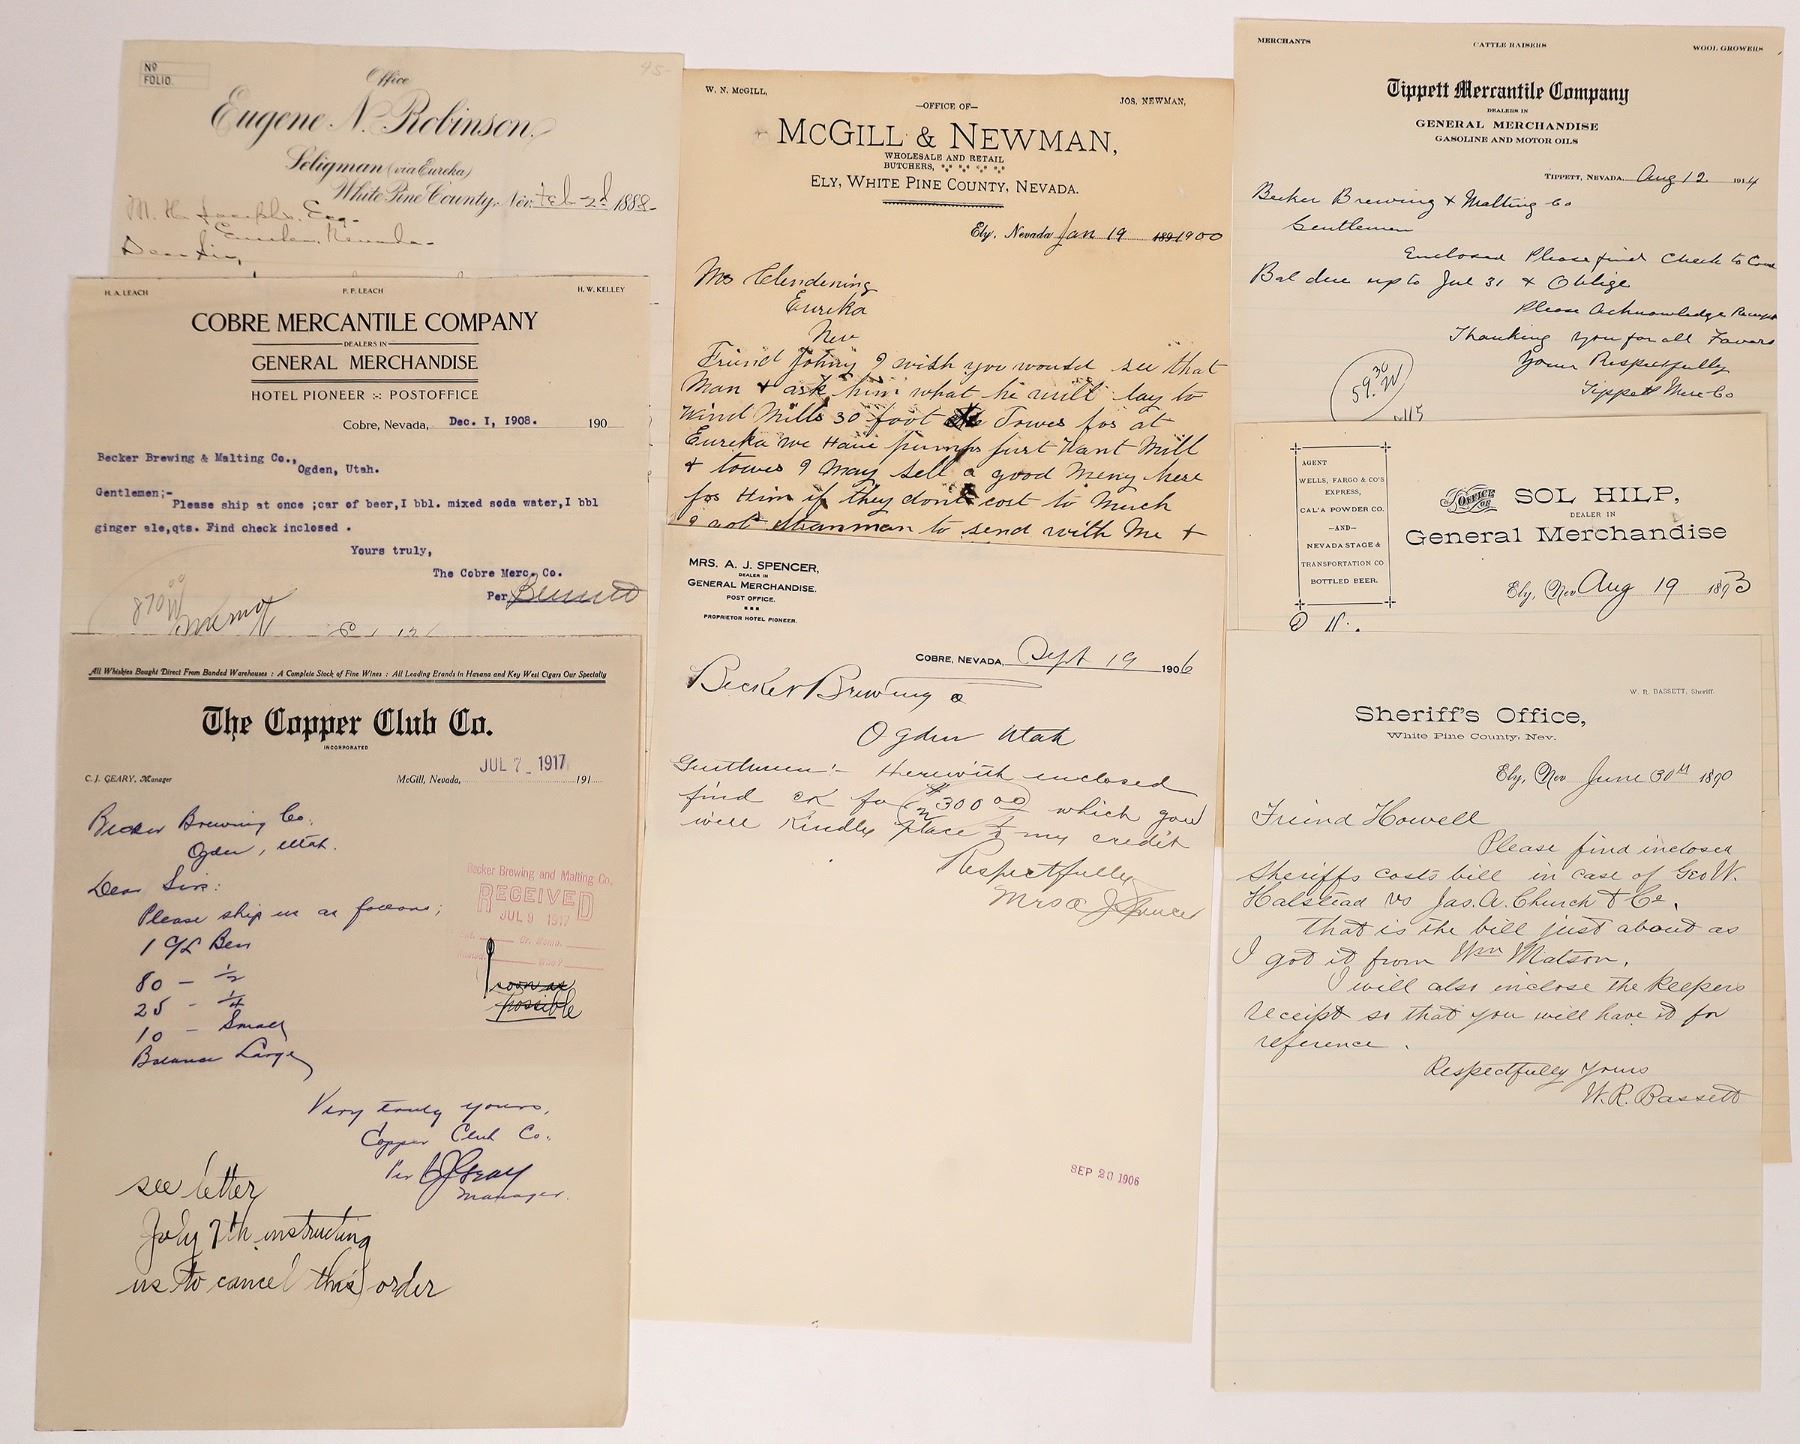 No
FOLIO.
95-
Office
Eugene N. Robinson,
Seligman (via Eureka)
White Pine County, Nev. Feb 2d 1888-
Eureka, Nevada-
Dear Sir,
H. A. LEACH
P. P. LEACH
H. W. KELLEY
COBRE MERCANTILE COMPANY
DEALERS IN
GENERAL MERCHANDISE
HOTEL PIONEER POSTOFFICE
Cobre, Nevada, Dec. I, 1908. 190
Becker Brewing & Malting Co.,
Ogden, Utah.
Gentlemen;-
Please ship at once ;car of beer,I bbl. mixed soda water,I bbl
ginger ale,qts. Find check inclosed .
Yours truly,
The Cobre Merc. Co.
Per Bennett
All Whiskies Bought Direct From Bonded Warehouses : A Complete Stock of Fine Wines : All Leading Brands in Havana and Key West Cigars Our Specialty
The Copper Club Co.
INCORPORATED
C. J. GEARY, Manager
McGill, Nevada, JUL 7 - 1917 191
Becker Brewing Co.
Ogden, Utah.
Dear Sirs:
Please ship us as follows;
1 C/L Beer
80 - 1/2
25 - 1/4
10 - Small
Balance Large
Becker Brewing and Malting Co.
RECEIVED
JUL 9 1917
soon as
possible
Very truly yours,
Copper Club Co.
Per C J Geary
Manager.
see letter
July 7th instructing
us to cancel this order
W. N. McGILL,
JOS. NEWMAN,
—OFFICE OF—
McGILL & NEWMAN,
WHOLESALE AND RETAIL
BUTCHERS,
ELY, WHITE PINE COUNTY, NEVADA.
Ely, Nevada Jan 19 189 1900
Mr Clendening
Eureka
Nev
Friend Johny I wish you would see that
Man & ask him what he will lay to
Wind Mills 30 foot Tower for at
Eureka we Have pumps just Want Mill
& tower I May sell a good Meny here
for Him if they dont cost to Much
to send with Me +
MRS. A. J. SPENCER,
DEALER IN
GENERAL MERCHANDISE.
POST OFFICE.
PROPRIETOR HOTEL PIONEER.
COBRE, NEVADA, Sept 19 1906
Becker Brewing Co
Ogden Utah
Gentlemen:- Herewith enclosed
find ck for $300 00 which you
will Kindly place to my credit
Respectfully
Mrs A J Spencer
SEP 20 1906
MERCHANTS
CATTLE RAISERS
WOOL GROWERS
Tippett Mercantile Company
DEALERS IN
GENERAL MERCHANDISE
GASOLINE AND MOTOR OILS
TIPPETT, NEVADA, Aug 12 1914
Becker Brewing & Malting Co
Gentlemen
Enclosed Please find Check to Cover
Bal due up to Jul 31 & Oblige
Please Acknowledge Receipt
Thanking you for all Favors
Your Respectfully
Tippett Merc Co
59.30
AGENT
WELLS, FARGO & CO'S
EXPRESS,
CAL'A POWDER CO.
—AND—
NEVADA STAGE &
TRANSPORTATION CO
BOTTLED BEER.
OFFICE OF
SOL HILP,
DEALER IN
General Merchandise
Ely, Nev Aug 19 1893
W. R. BASSETT, Sheriff.
Sheriff's Office,
White Pine County, Nev.
Ely, Nev June 30th 1890
Friend Howell
Please find inclosed
Sheriffs costs bill in case of Geo W.
Halstead vs Jas. A. Church & Co.
that is the bill just about as
I got it from Wm Matson.
I will also inclose the keepers
receipt so that you will have it for
reference.
Respectfully Yours
W. R. Bassett